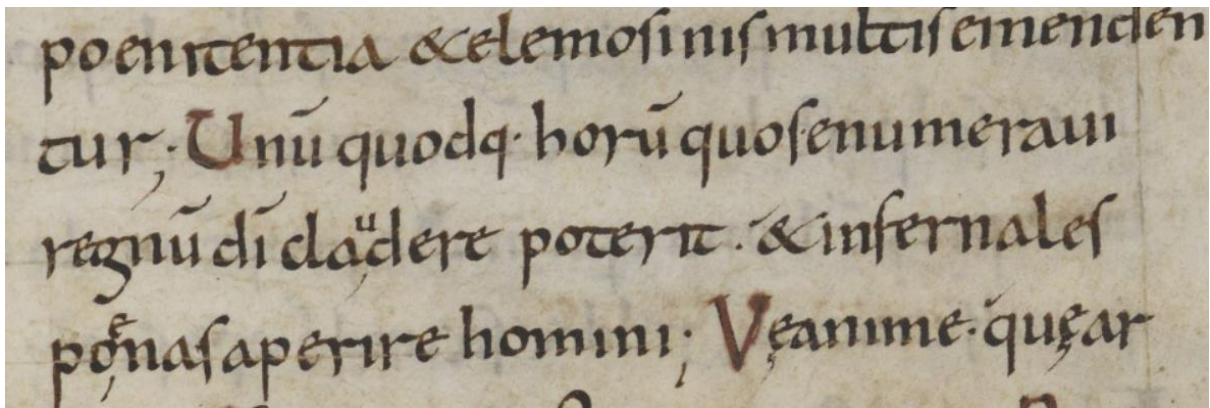 poenitentia & elemosinis multis emenden
tur; Unū quodq· horū quos enumeraui
regnū dī claudere poterit · & infernales
pęnas aperire homini; Vę anime · quę ar